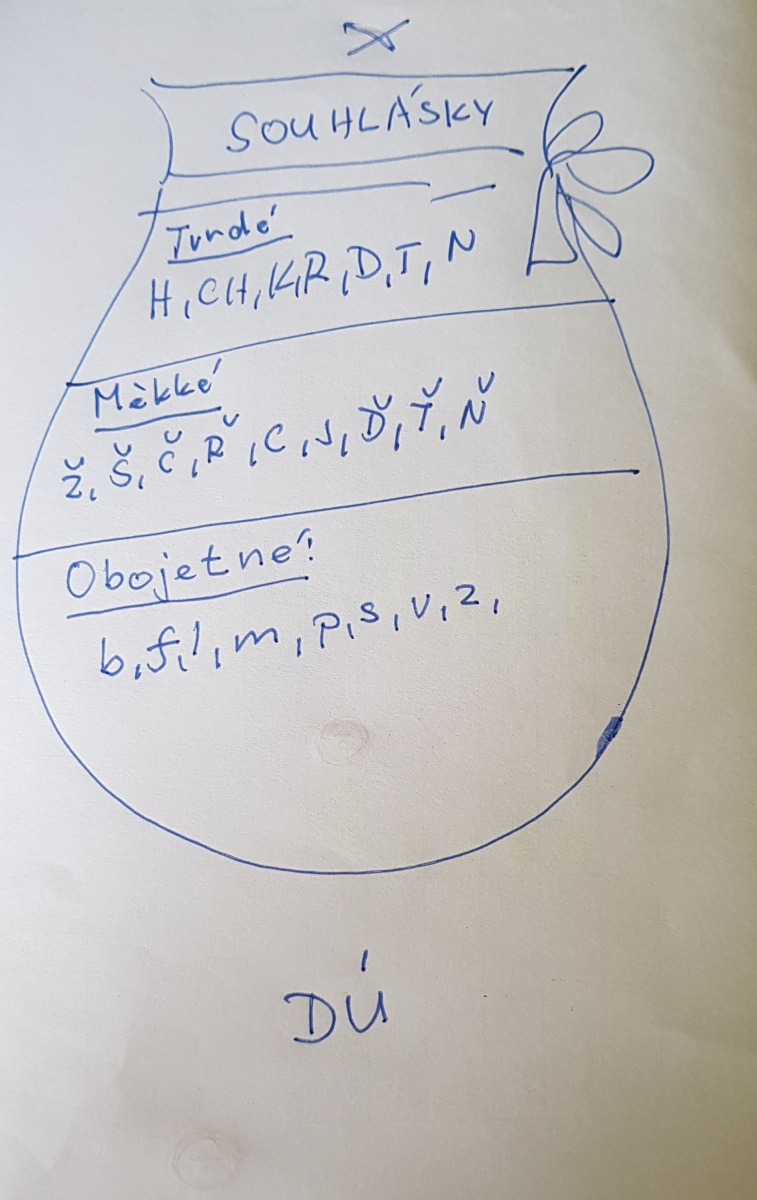 SOUHLÁSKY
Tvrdé
H, CH, K, R, D, T, N
Měkké
Ž, Š, Č, Ř, C, J, Ď, Ť, Ň
Obojetné!
b, f, l, m, p, s, v, z,
DÚ